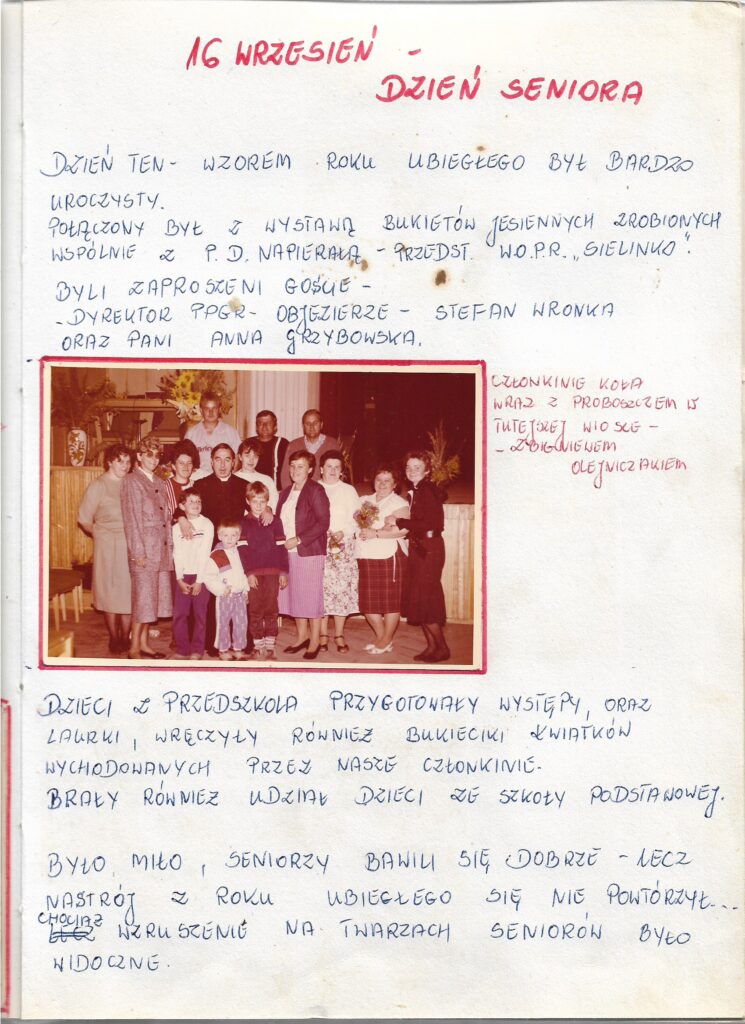 16 WRZESIEŃ -
DZIEŃ SENIORA
DZIEŃ TEN - WZOREM ROKU UBIEGŁEGO BYŁ BARDZO
UROCZYSTY.
POŁĄCZONY BYŁ Z WYSTAWĄ BUKIETÓW JESIENNYCH ZROBIONYCH
WSPÓLNIE Z P. D. NAPIERAŁĄ - PRZEDST. W.O.P.R. „SIELINKO".
BYLI ZAPROSZENI GOŚCIE -
- DYREKTOR PPGR - OBJEZIERZE - STEFAN WRONKA
ORAZ PANI ANNA GRZYBOWSKA.
CZŁONKINIE KOŁA
WRAZ Z PROBOSZCZEM W
TUTEJSZEJ WIOSCE -
- ZBIGNIEWEM
OLEJNICZAKIEM
DZIECI Z PRZEDSZKOLA PRZYGOTOWAŁY WYSTĘPY, ORAZ
LAURKI, WRĘCZYŁY RÓWNIEŻ BUKIECIKI KWIATKÓW
WYCHODOWANYCH PRZEZ NASZE CZŁONKINIE.
BRAŁY RÓWNIEŻ UDZIAŁ DZIECI ZE SZKOŁY PODSTAWOWEJ.
BYŁO MIŁO, SENIORZY BAWILI SIĘ DOBRZE - LECZ
NASTRÓJ Z ROKU UBIEGŁEGO SIĘ NIE POWTÓRZYŁ...
CHOCIAŻ
LECZ WZRUSZENIE NA TWARZACH SENIORÓW BYŁO
WIDOCZNE.